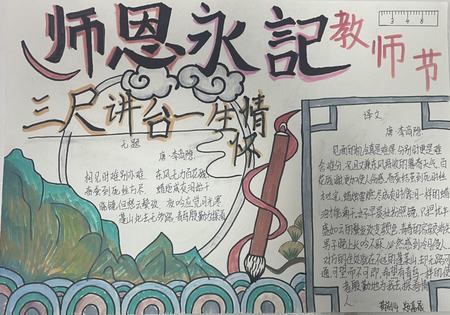 师恩永記
教师节
三尺讲台一生情怀
无题
唐·李商隐
相见时难别亦难 东风无力百花残
春蚕到死丝方尽 蜡炬成灰泪始干
晓镜但愁云鬓改 夜吟应觉月光寒
蓬山此去无多路 青鸟殷勤为探看
译文
唐·李商隐
见面的机会真是难得,分别时更是难
舍难分,况且又兼东风将收的暮春天气,百
花残谢,更加使人伤感。春蚕结茧到死时丝
才吐完,蜡烛要燃尽成灰时像泪一样的蜡
油才能滴干。女子早晨妆扮照镜,只担忧丰
盛如云的鬓发改变颜色,青春的容颜消失。
男子晚上长吟不寐,必然感到冷月侵人。
对方的住处就在不远的蓬莱山,却无路可
通,可望而不可即。希望有青鸟一样的使
者殷勤地为我去探看情
人